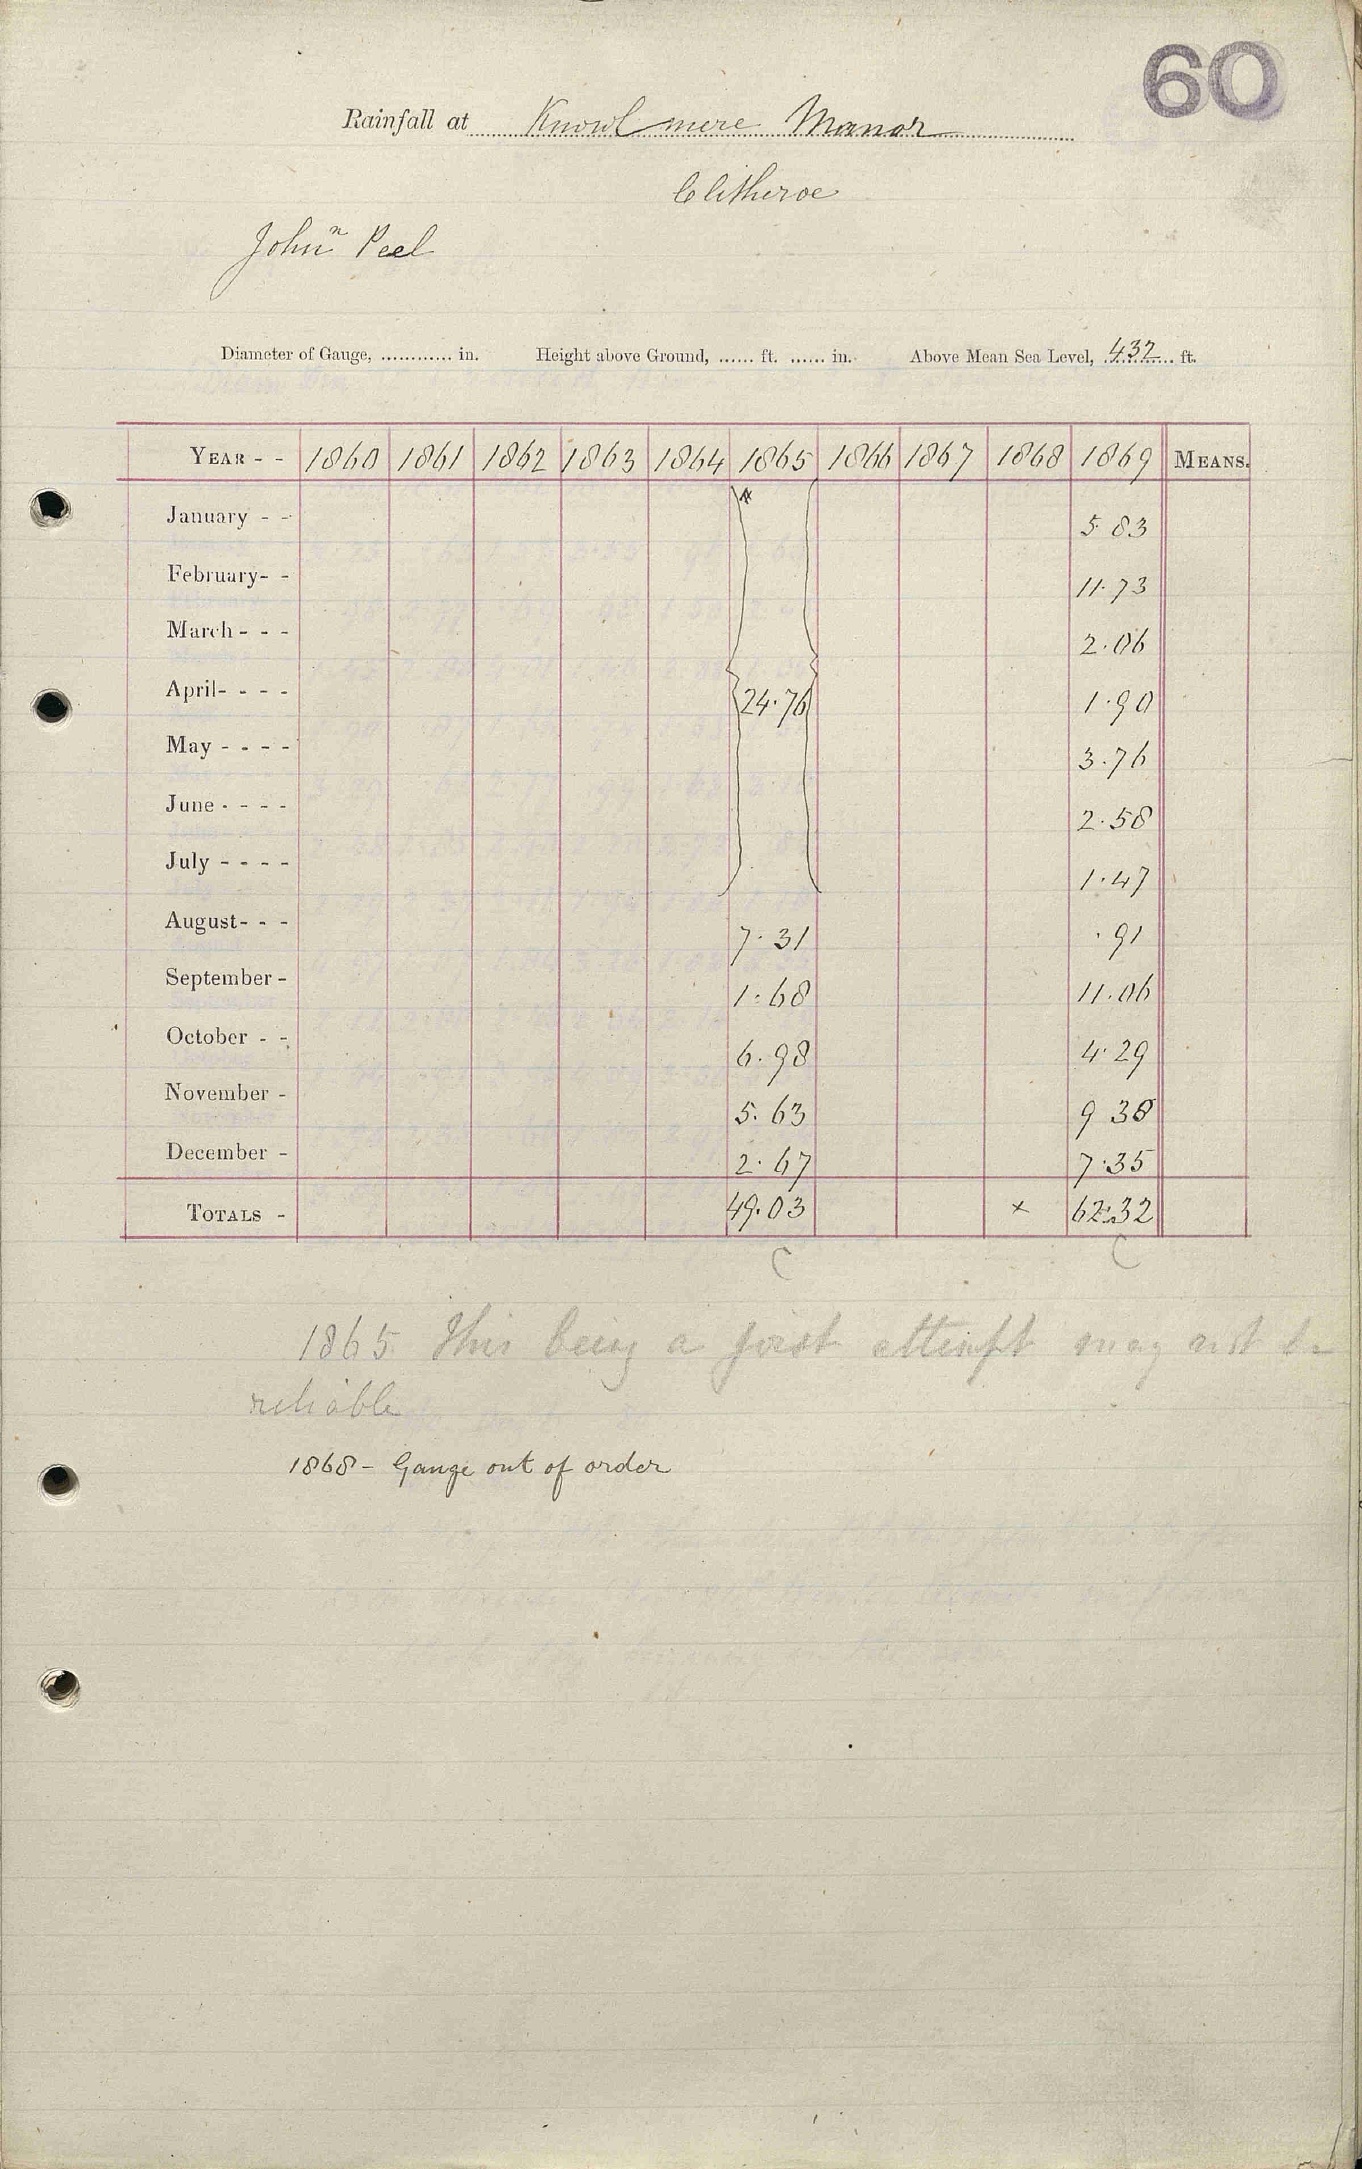 60
Rainfall at Knowlmere Manor
Clitheroe
Johnⁿ Peel
Diameter of Gauge, ............ in. Height above Ground, ...... ft. ...... in. Above Mean Sea Level, 432 ft.
YEAR - - 1860 1861 1862 1863 1864 1865 1866 1867 1868 1869 MEANS.
January - - * 5.83
February- - 11.73
March - - - 2.06
April- - - - 24.76 1.90
May - - - - 3.76
June - - - - 2.58
July - - - - 1.47
August- - - 7.31 .91
September - 1.68 11.06
October - - 6.98 4.29
November - 5.63 9 38
December - 2.67 7.35
TOTALS - 49.03 × 62.32
C C
1865 This being a first attempt may not be
reliable
1868 - Gauge out of order